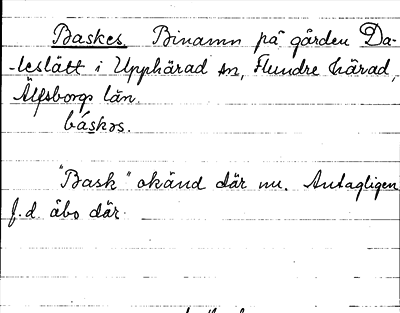 Baskes. Binamn på gården Da-
-leslätt i Upphärad sn, Flundre härad,
Älfsborgs län.
báskǝs.
"Bask" okänd där nu. Antagligen
f.d. åbo där.